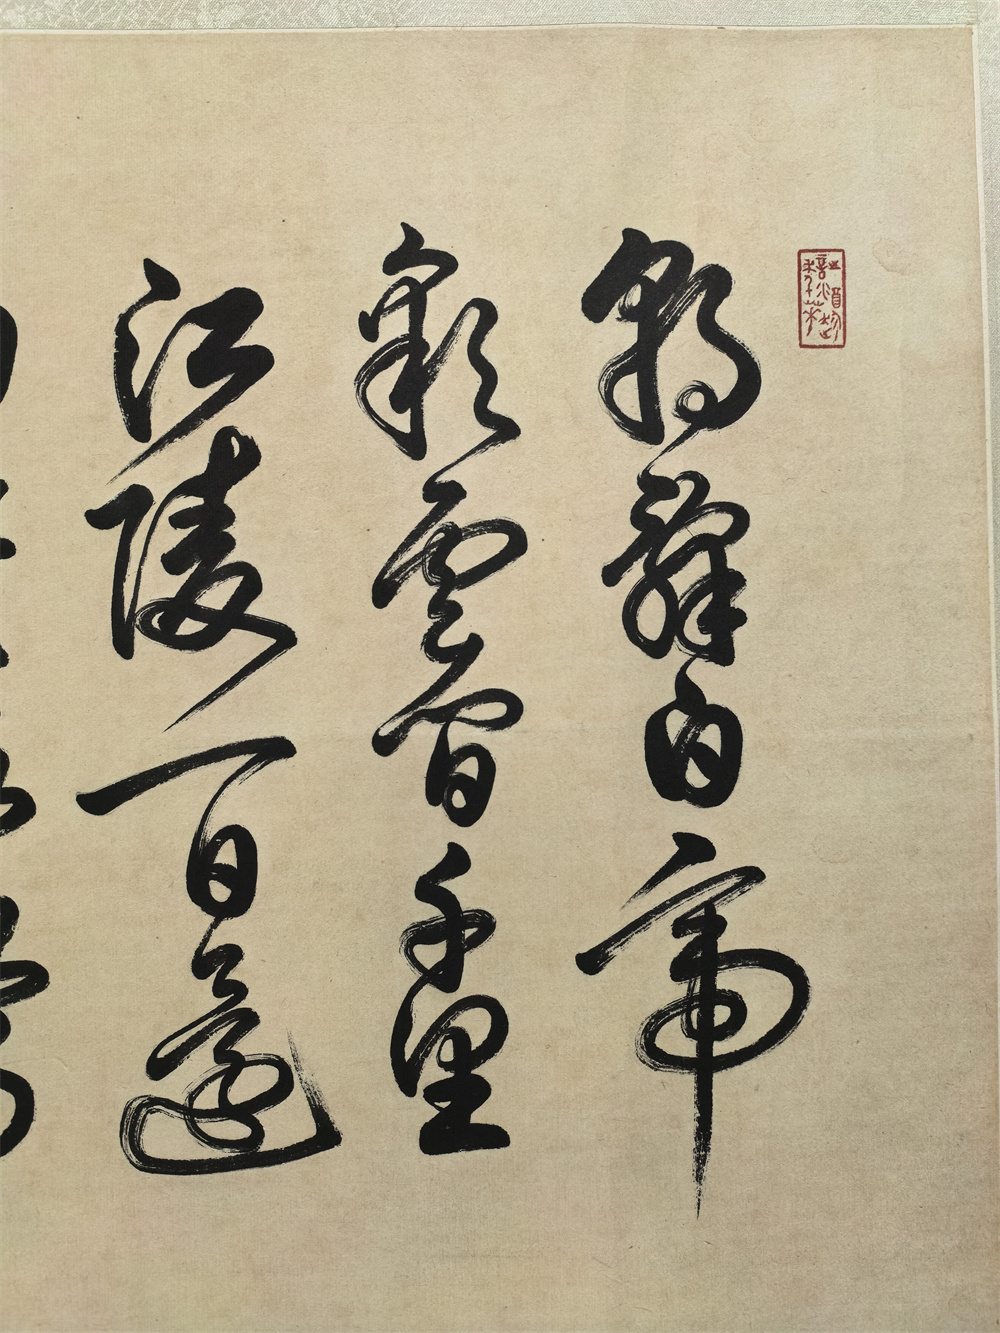 朝辭白帝
彩雲間千里
江陵一日還